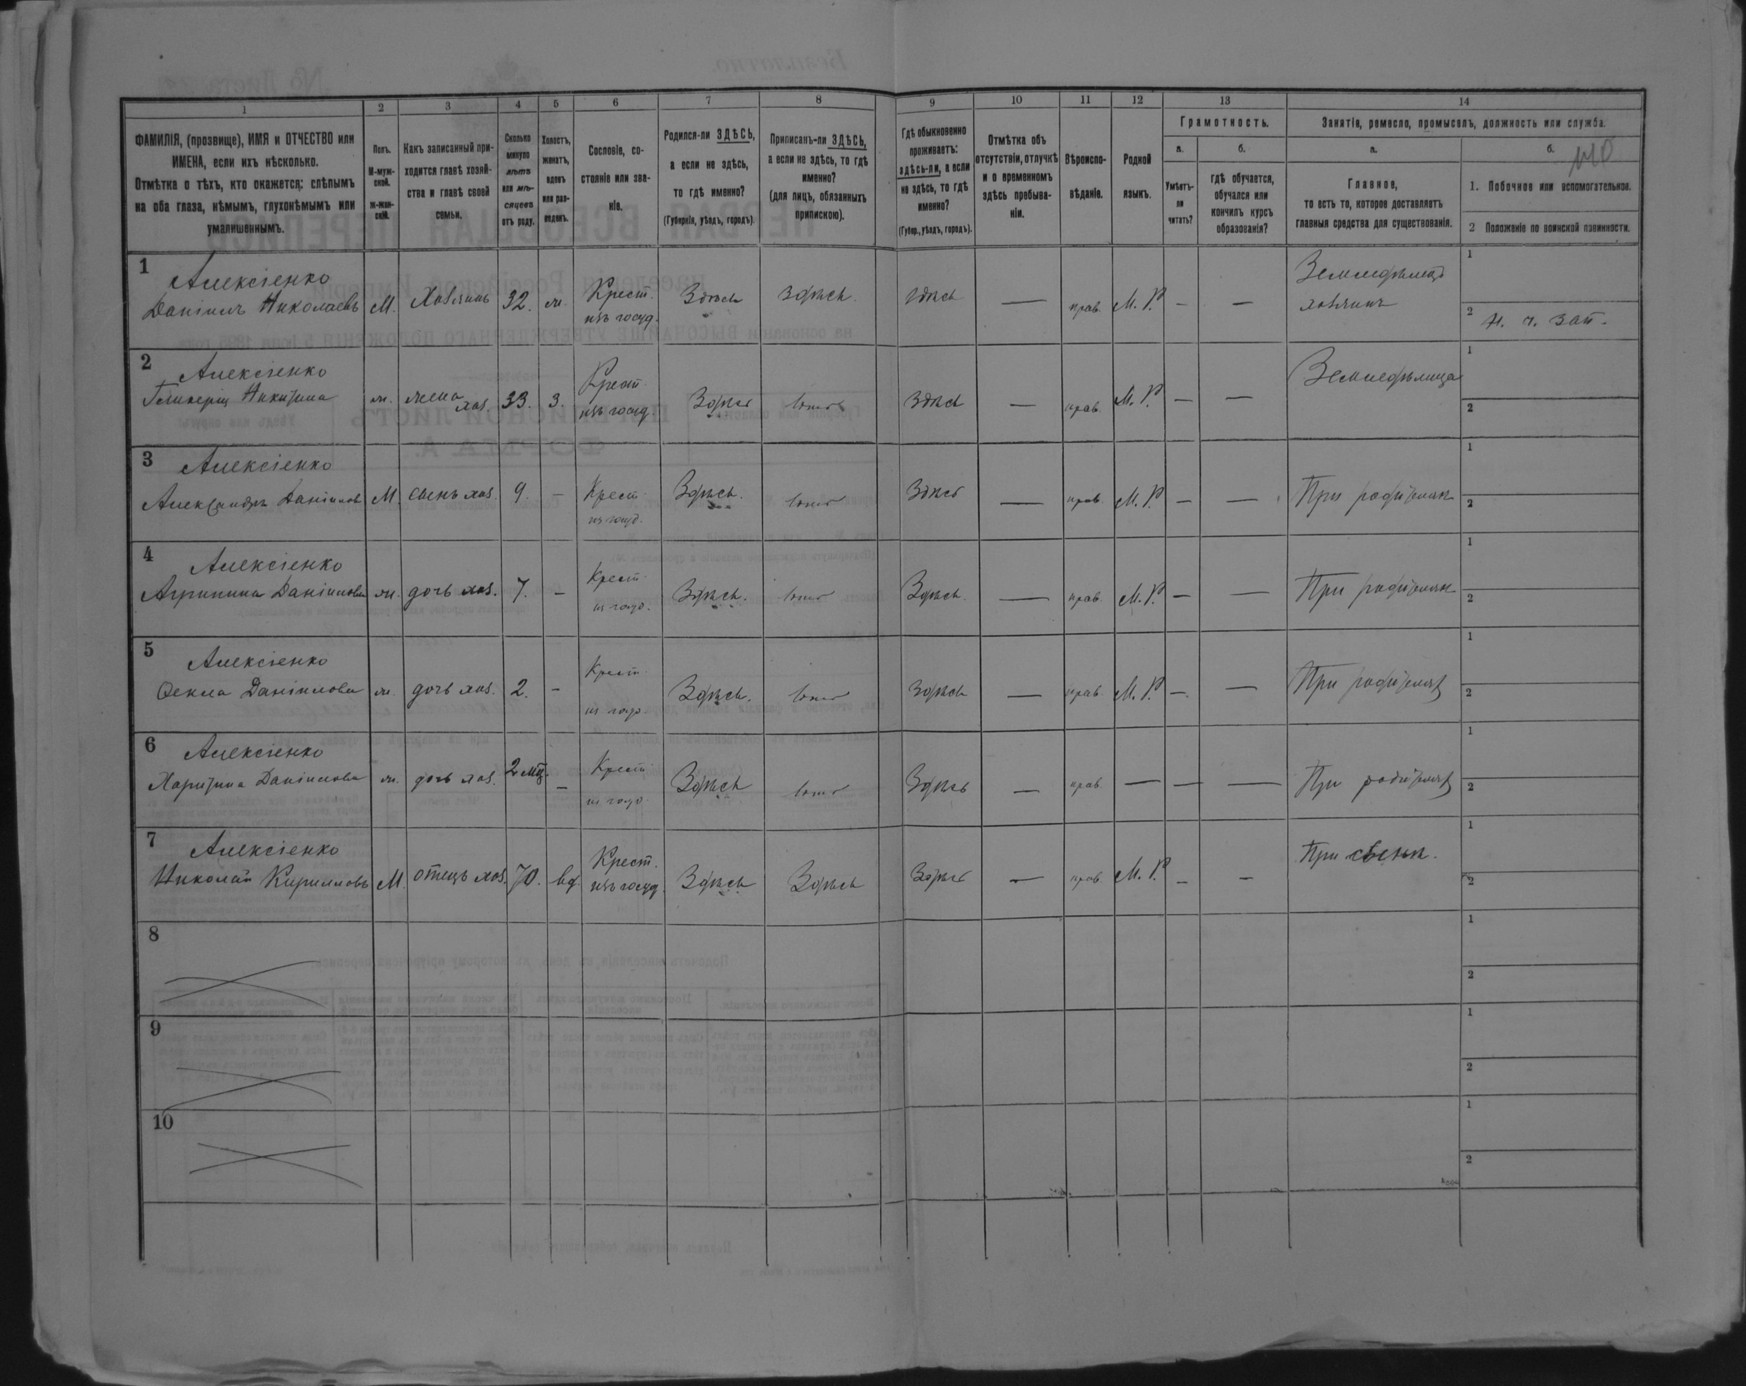 1
2
3
4
5
6
7
8
9
10
11
12
13
14
ФАМИЛІЯ, (прозвище), ИМЯ и ОТЧЕСТВО или
ИМЕНА, если ихъ нѣсколько.
Отмѣтка о тѣхъ, кто окажется: слѣпымъ
на оба глаза, нѣмымъ, глухонѣмымъ или
умалишеннымъ.
Полъ.
М-муж-
ской.
ж-жен-
скій.
Какъ записанный при-
ходится главѣ хозяй-
ства и главѣ своей
семьи.
Сколько
минуло
лѣтъ
или мѣ-
сяцевъ
отъ роду.
Холостъ,
женатъ,
вдовъ
или раз-
веденъ.
Сословіе, со-
стояніе или зва-
ніе.
Родился-ли ЗДѢСЬ,
а если не здѣсь,
то гдѣ именно?
(Губернія, уѣздъ, городъ).
Приписанъ-ли ЗДѢСЬ,
а если не здѣсь, то гдѣ
именно?
(для лицъ, обязанныхъ
припискою).
Гдѣ обыкновенно
проживаетъ:
здѣсь-ли, а если
не здѣсь, то гдѣ
именно?
(Губер., уѣздъ, городъ).
Отмѣтка объ
отсутствіи, отлучкѣ
и о временномъ
здѣсь пребыва-
ніи.
Вѣроиспо-
вѣданіе.
Родной
языкъ.
Грамотность.
а.
Умѣетъ-
ли
читать?
б.
гдѣ обучается,
обучался или
кончилъ курсъ
образованія?
Занятіе, ремесло, промыселъ, должность или служба.
а.
Главное,
то есть то, которое доставляетъ
главныя средства для существованія.
б.
1. Побочное или вспомогательное.
2 Положеніе по воинской повинности.
1
Алексіенко
Даніилъ Николаевъ М. Хозяинъ 32. ж. Крест. Здѣсь здѣсь. здѣсь — прав. М. Р. — — Земледѣлецъ
изъ госуд. хозяинъ
1
2 н. ч. зап.
2
Алексіенко
Гликерія Никитина ж. жена хоз. 33. з. Крест. Здѣсь тоже здѣсь — прав. М. Р. — — Земледѣлица
изъ госуд.
1
2
3
Алексіенко
Александръ Даніиловъ М. сынъ хоз. 9. — Крест. Здѣсь. тоже Здѣсь — прав. М. Р. — — При родителяхъ
из госуд.
1
2
4
Алексіенко
Агрипина Даніилова ж. дочь хоз. 7. — Крест. Здѣсь. тоже Здѣсь. — прав. М. Р. — — При родителяхъ
из госуд.
1
2
5
Алексіенко
Ѳекла Даніилова ж. дочь хоз. 2. — Крест. Здѣсь. тоже Здѣсь — прав. М. Р. — — При родителях
из госуд.
1
2
6
Алексіенко
Харитина Даніилова ж. дочь хоз. 2 мц. — Крест. Здѣсь тоже Здѣсь — прав. — — — При родителях
из госуд.
1
2
7
Алексіенко
Николай Кирилловъ М. отецъ хоз. 70. вд. Крест. Здѣсь Здѣсь Здѣсь — прав. М. Р. — — При сынѣ.
изъ госуд.
1
2
8
1
2
9
1
2
10
1
2